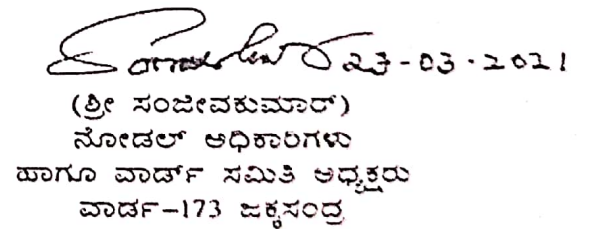 23-03-2021
(ಶ್ರೀ ಸಂಜೀವಕುಮಾರ್)
ನೋಡಲ್ ಅಧಿಕಾರಿಗಳು
ಹಾಗೂ ವಾರ್ಡ್ ಸಮಿತಿ ಅಧ್ಯಕ್ಷರು
ವಾರ್ಡ-173 ಜಕ್ಕಸಂದ್ರ